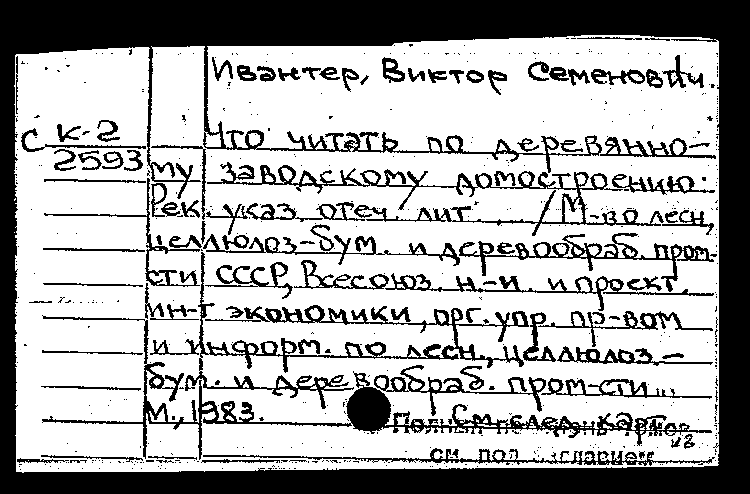 Ивантер, Виктор Семенович.
С К-2
2593
Что читать по деревянно-
му заводскому домостроению:
Рек. указ. отеч. лит. ... / М-во лесн.,
целлюлоз-бум. и деревообраб. пром-
сти СССР, Всесоюз. н.-и. и проект.
ин-т экономики, орг. упр. пр-вом
и информ. по лесн., целлюлоз.-
бум. и деревообраб. пром-сти...
М., 1983. См. след. карт.
Полный
см. под заглавием